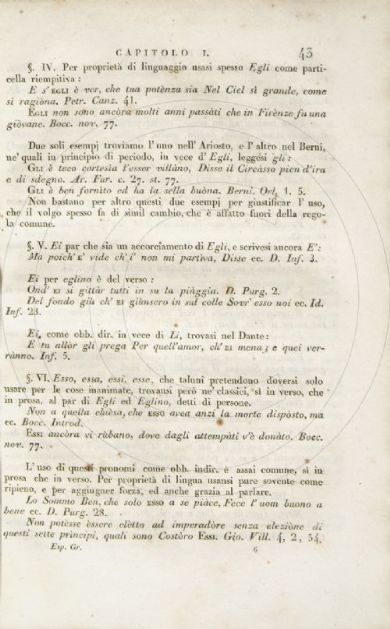 CAPITOLO I. 43
§. IV. Per proprietà di linguaggio usasi spesso Egli come parti-
cella riempitiva :
E s' EGLI è ver, che tua potènza sia Nel Ciel sì grande, come
si ragiòna. Petr. Canz. 41.
EGLI non sono ancòra molti anni passàti che in Firènze fu una
giòvane. Bocc. nov. 77.
Due soli esempj troviamo l'uno nell' Ariosto, e l'altro nel Berni,
ne' quali in principio di periodo, in vece d' Egli, leggèsi gli :
GLI è teco cortesìa l'esser villàno, Disse il Circàsso pien d'ira
e di sdegno. Ar. Fur. c. 27. st. 77.
GLI è ben fornìto ed ha la sella buòna. Berni. Orl. 1. 5.
Non bastano per altro questi due esempj per giustificar l' uso,
che il volgo spesso fa di simil cambio, che è affatto fuori della rego-
la comune.
§. V. Ei par che sia un accorciamento di Egli, e scrivesi ancora E':
Ma poich' E' vide ch' i' non mi partiva, Disse ec. D. Inf. 3.
Ei per eglino è del verso :
Ond' EI si gittàr tutti in su la piàggia. D. Purg. 2.
Del fondo giù ch' EI giùnsero in sul colle Sovr' esso noi ec. Id.
Inf. 23.
Ei, come obb. dir. in vece di Li, trovasi nel Dante :
E tu allòr gli prega Per quell'amor, ch' EI mena ; e quei ver-
rànno. Inf. 5.
§. VI. Esso, essa, essi, esse, che taluni pretendono doversi solo
usare per le cose inanimate, trovansi però ne' classici, sì in verso, che
in prosa, al par di Egli ed Eglino, detti di persone.
Non a quella chièsa, che ESSO avea anzi la morte dispòsto, ma
ec. Bocc. Introd.
ESSI ancòra vi rùbano, dove dagli attempàti v'è donàto. Bocc.
nov. 77.
L' uso di questi pronomi come obb. indir. è assai comune, sì in
prosa che in verso. Per proprietà di lingua usansi pure sovente come
ripieno, e per aggiugner forza, ed anche grazia al parlare.
Lo Sommo Ben, che solo ESSO a se piàce, Fece l' uom buono a
bene ec. D. Purg. 28.
Non potèsse èssere elètto ad imperadòre senza elezióne di
questi sette prìncipi, quali sono Costòro ESSI. Gio. Vill. 4, 2, 54.
Esp. Gr. 6